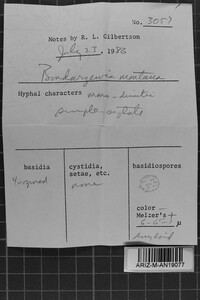 No. 3057
Notes by R. L. Gilbertson
July 23, 1985
Bondarzewia montana
Hyphal characters mono-dimitic
simple-septate
basidia
4-spored
cystidia, setae, etc.
none
basidiospores
color -
Melzer's +
μ
amyloid
ARIZ-M-AN19077